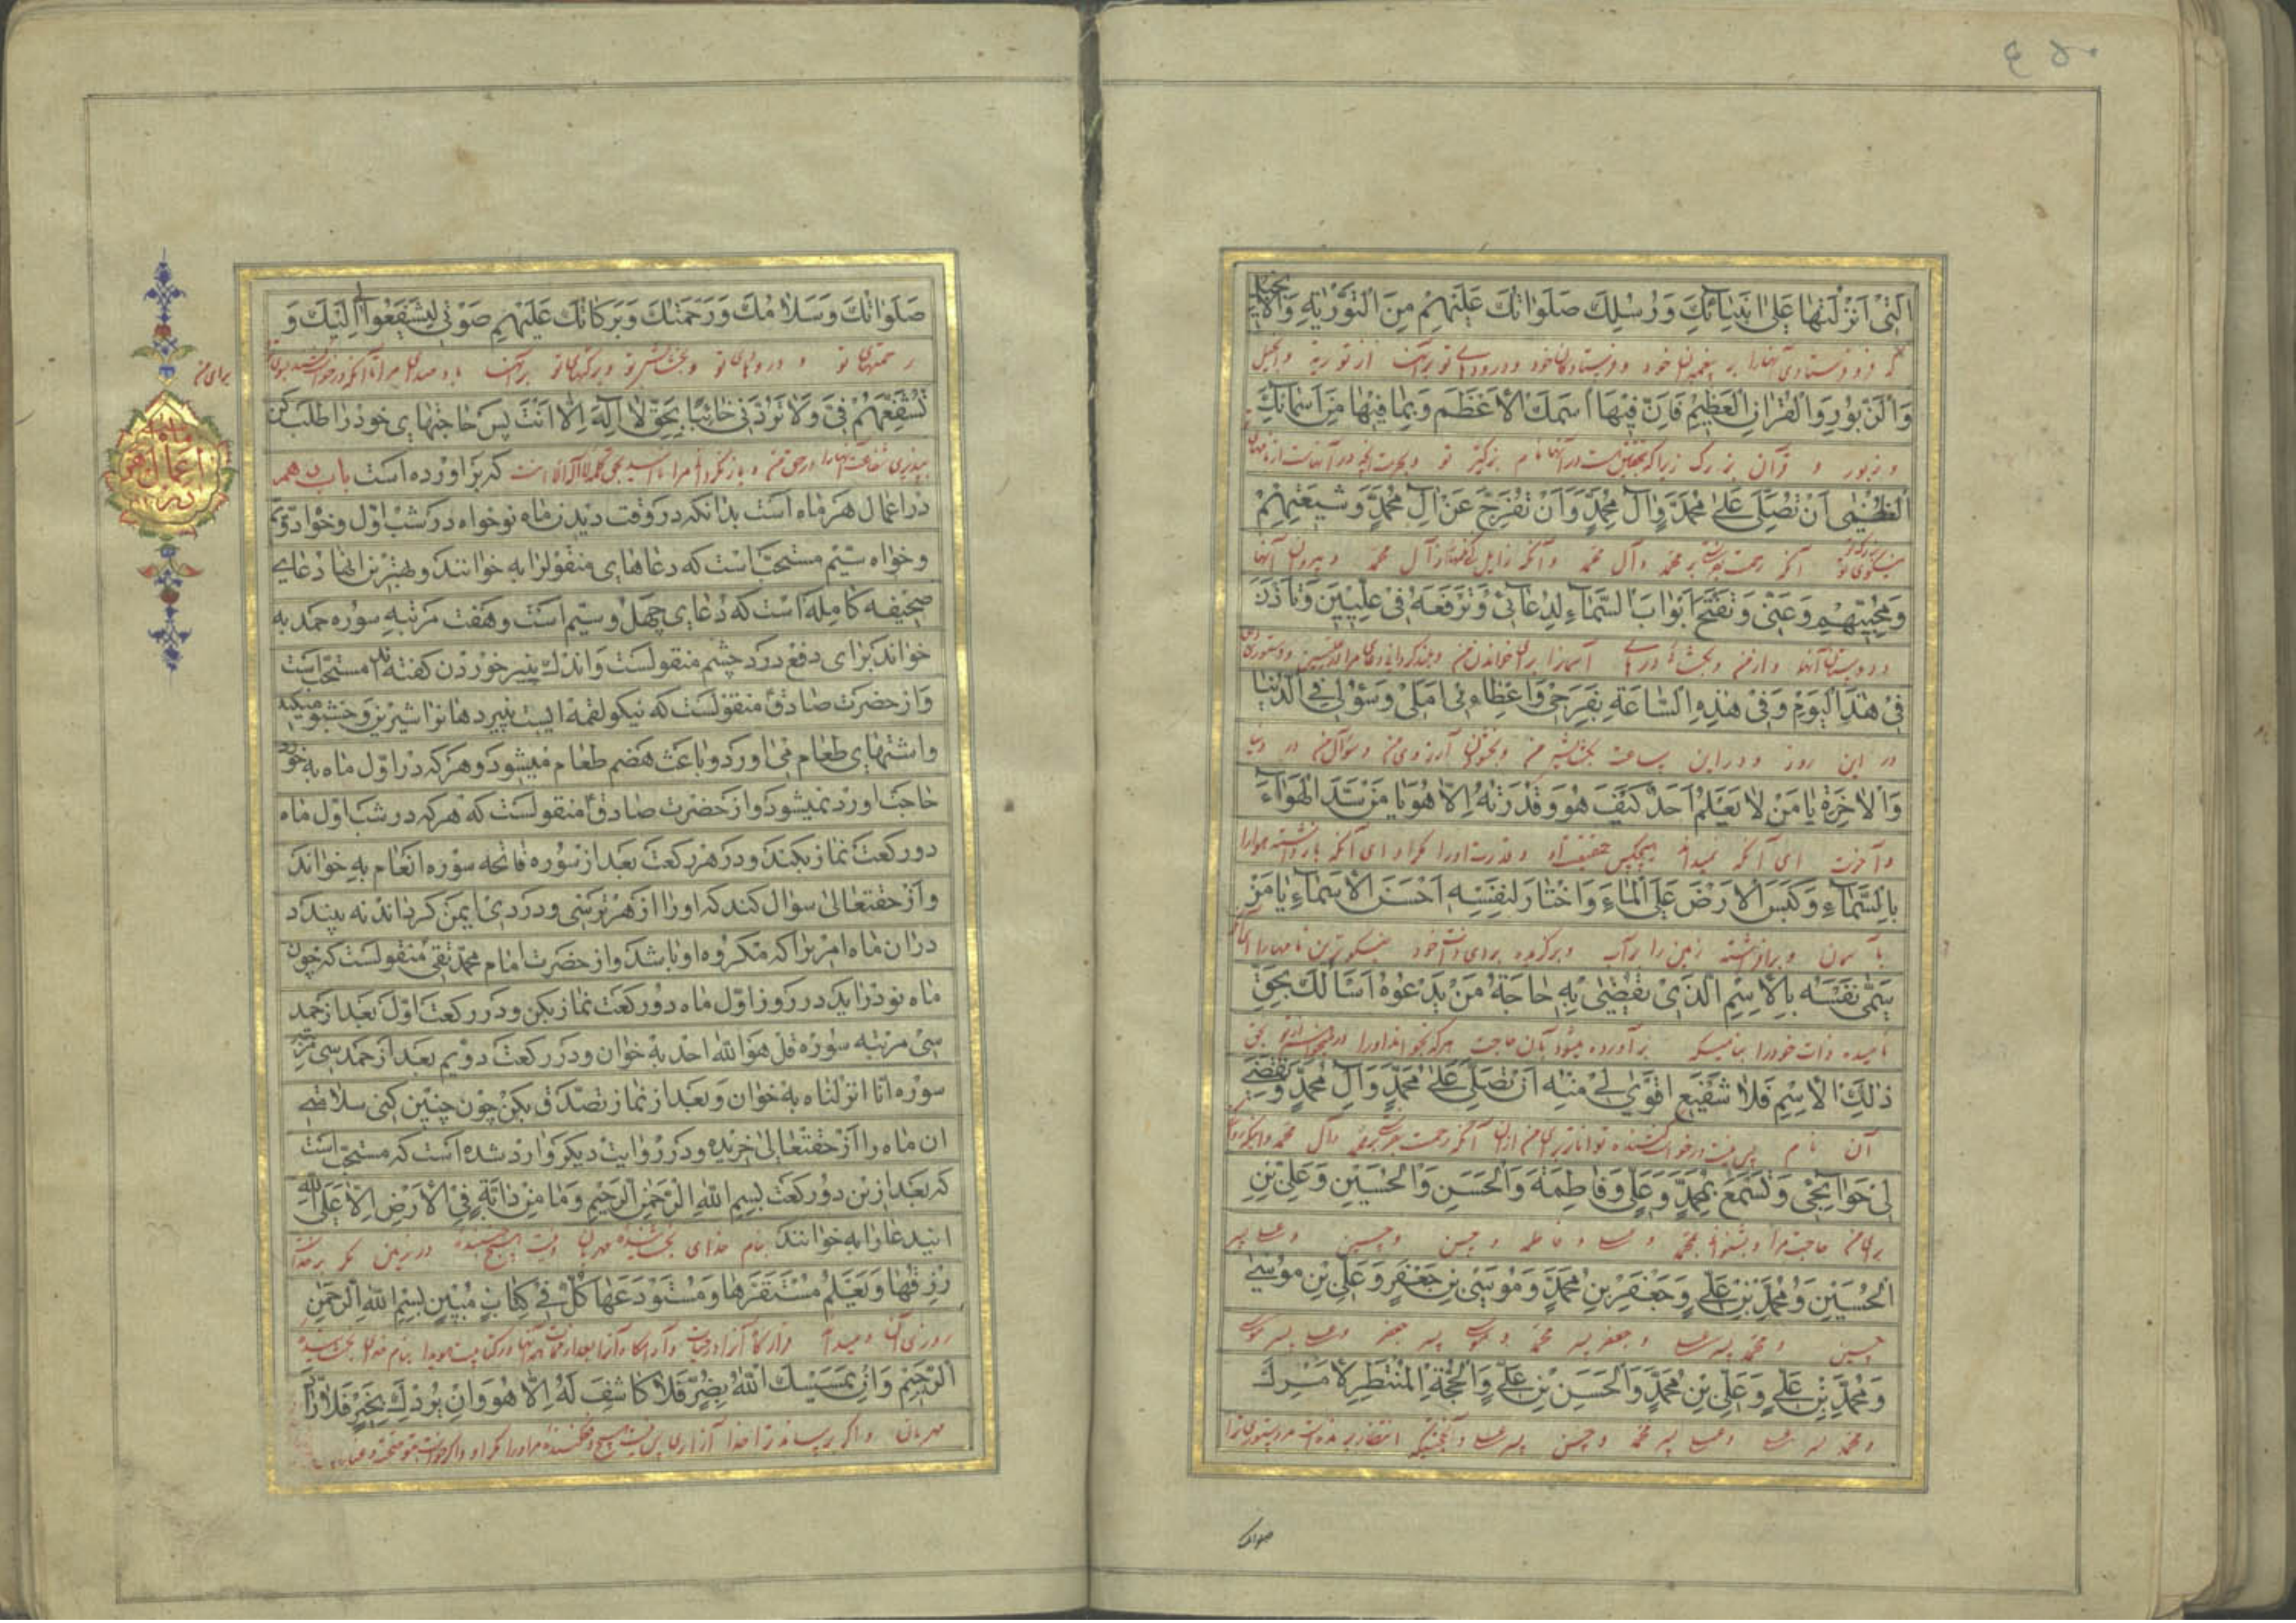 ۴۵۰
الَّتِی اَنْزَلْتَهٰا عَلیٰ اَنْبِیٰائِكَ وَرُسُلِكَ صَلَوٰاتُكَ عَلَیْهِمْ مِنَ التَّوْرٰیةِ وَالْاِنجیل
که فرو فرستادی آنها را بر پیغمبران خود و فرستادگان خود و درودهای تو بر آنها از توریة و انجیل
وَالزَّبُورِ وَالْقُرْاٰنِ الْعَظِیْمِ فَاِنَّ فِیْهٰا اسْمَكَ الْاَعْظَمَ وَبِمٰا فِیْهٰا مِنْ اَسْمٰائِكَ
و زبور و قرآن بزرگ زیرا که بتحقیق هست در آنها نام بزرگتر تو و بحرمت آنچه در آنهاست از نامهای
الْعُظْمیٰ اَنْ تُصَلِّیَ عَلیٰ مُحَمَّدٍ وَاٰلِ مُحَمَّدٍ وَاَنْ تُفَرِّجَ عَنْ اٰلِ مُحَمَّدٍ وَشِیعَتِهِمْ
آنکه رحمت بفرستی بر محمد و آل محمد و آنکه زایل کنی غمها از آل محمد و پیروان آنها
وَمُحِبِّیْهِمْ وَعَنّی وَتَفْتَحَ اَبْوٰابَ السَّمٰاءِ لِدُعٰائی وَتَرْفَعَهُ فی عِلِّیّینَ وَتَأذَنَ
و دوستان آنها و از من و بگشائی درهای آسمان را برای خواندن من و بلند گردانی دعای مرا در علیین و دستوری دهی
فی هٰذَا الْیَوْمِ وَفی هٰذِهِ السّٰاعَةِ بِفَرَجی وَاِعْطٰاءِ اَمَلی وَسُؤْلی فِی الدُّنْیٰا
در این روز و در این ساعت بگشایش من و بخشیدن آرزوی من و سؤال من در دنیا
وَالْاٰخِرَةِ یٰا مَنْ لٰا یَعْلَمُ اَحَدٌ كَیْفَ هُوَ وَقُدْرَتَهُ اِلّٰا هُوَ یٰا مَنْ سَدَّ الْهَوٰاءَ
و آخرت ای آنکه نمیداند هیچکس حقیقت او و قدرت او را مگر او ای آنکه باز داشته هوا را
بِالسَّمٰاءِ وَكَبَسَ الْاَرْضَ عَلَی الْمٰاءِ وَاخْتٰارَ لِنَفْسِهِ اَحْسَنَ الْاَسْمٰاءِ یٰا مَنْ
با آسمان و برافراشته زمین را بر آب و برگزیده برای ذات خود نیکوترین نامها را ای آنکه
سَمّٰی نَفْسَهُ بِالْاِسْمِ الَّذی یُقْضیٰ بِهِ حٰاجَةُ مَنْ یَدْعُوهُ اَسْأَلُكَ بِحَقِّ
نامیده ذات خود را بنامیکه برآورده میشود بآن حاجت هرکه بخواند او را درخواست میکنم از تو بحق
ذٰلِكَ الْاِسْمِ فَلٰا شَفیعَ اَقْوٰی لی مِنْهُ اَنْ تُصَلِّیَ عَلیٰ مُحَمَّدٍ وَاٰلِ مُحَمَّدٍ وَتَقْضِیَ
آن نام پس نیست درخواست کننده تواناتر برای من از آن آنکه رحمت بفرستی بر محمد و آل محمد و آنکه روا کنی
لی حَوٰائِجی وَتُسْمِعَ بِمُحَمَّدٍ وَعَلِیٍّ وَفٰاطِمَةَ وَالْحَسَنِ وَالْحُسَیْنِ وَعَلِیِّ بْنِ
برای من حاجت مرا و بشنوانی بمحمد و علی و فاطمه و حسن و حسین و علی پسر
الْحُسَیْنِ وَمُحَمَّدِ بْنِ عَلِیٍّ وَجَعْفَرِ بْنِ مُحَمَّدٍ وَمُوسَی بْنِ جَعْفَرٍ وَعَلِیِّ بْنِ مُوسیٰ
حسین و محمد پسر علی و جعفر پسر محمد و موسی پسر جعفر و علی پسر موسی
وَمُحَمَّدِ بْنِ عَلِیٍّ وَعَلِیِّ بْنِ مُحَمَّدٍ وَالْحَسَنِ بْنِ عَلِیٍّ وَالْحُجَّةِ الْمُنْتَظِرِ لِاَمْرِكَ
و محمد پسر علی و علی پسر محمد و حسن پسر علی و
صلواتك
صَلَوٰاتُكَ وَسَلٰامُكَ وَرَحْمَتُكَ وَبَرَكٰاتُكَ عَلَیْهِمْ صَوْتی لِیَشْفَعُوا لی اِلَیْكَ وَ
رحمتهای تو و درودهای تو و بخشایش تو و برکتهای تو بر آنها باد صدای مرا تا آنکه درخواست کنند بسوی تو
برای من
تُشَفِّعَهُمْ فِیَّ وَلٰا تَرُدَّنی خٰائِبًا بِحَقِّ لٰا اِلٰهَ اِلّٰا اَنْتَ پس حاجتهای خود را طلب کن
بپذیری شفاعت آنها را در حق من و باز نگردانی مرا نا امید بحق لا اله الا انت که برآورده است باب دهم
در اعمال هر ماه است بدانکه در وقت دیدن ماه نو خواه در شب اول و خواه دویم
اعمال هر ماه
و خواه سیّم مستحب است که دعاهای منقول را به خوانند و بهترین انها دعای
صحیفه کامله است که دعای چهل و سیّم است و هفت مرتبه سوره حمد به
خواند برای دفع درد چشم منقولست و اندك پنیر خوردن گفته اند مستحب است
و از حضرت صادق منقولست که نیکو لقمه ایست پنیر دهان را شیرین و خشبو میکند
و اشتهای طعام می اورد و باعث هضم طعام میشود و هر که در اول ماه به خورد
حاجت او رد نمیشود و از حضرت صادق منقولست که هر که در شب اول ماه
دو رکعت نماز بکند و در هر رکعت بعد از سوره فاتحه سوره انعام به خواند
و از حقتعالی سؤال کند که او را از هر ترسی و دردی ایمن گرداند نه بیند
در ان ماه امری را که مکروه او باشد و از حضرت امام محمد تقی منقولست که چون
ماه نو درآید در روز اول ماه دو رکعت نماز بکن و در رکعت اول بعد از حمد
سی مرتبه سوره قل هو الله احد به خوان و در رکعت دویم بعد از حمد سی مرتبه
سوره انا انزلناه به خوان و بعد از نماز تصدق بکن چون چنین کنی سلامتی
ان ماه را از حقتعالی خریده و در روایت دیگر وارد شده است که مستحب است
که بعد از این دو رکعت بِسْمِ اللهِ الرَّحْمٰنِ الرَّحیمِ وَمٰا مِنْ دٰابَّةٍ فِی الْاَرْضِ اِلّٰا عَلَی اللهِ
ایندعا را به خوانند بنام خدای بخشاینده مهربان و نیست هیچ جنبنده در زمین مگر بر خداست
رِزْقُهٰا وَیَعْلَمُ مُسْتَقَرَّهٰا وَمُسْتَوْدَعَهٰا كُلٌّ فی كِتٰابٍ مُبینٍ بِسْمِ اللهِ الرَّحْمٰنِ
روزی آن و میداند
الرَّحیمِ وَاِنْ یَمْسَسْكَ اللهُ بِضُرٍّ فَلٰا كٰاشِفَ لَهُ اِلّٰا هُوَ وَاِنْ یُرِدْكَ بِخَیْرٍ فَلٰا رٰادَّ
مهربان و اگر برساند ترا خدا آزاری پس نیست هیچ